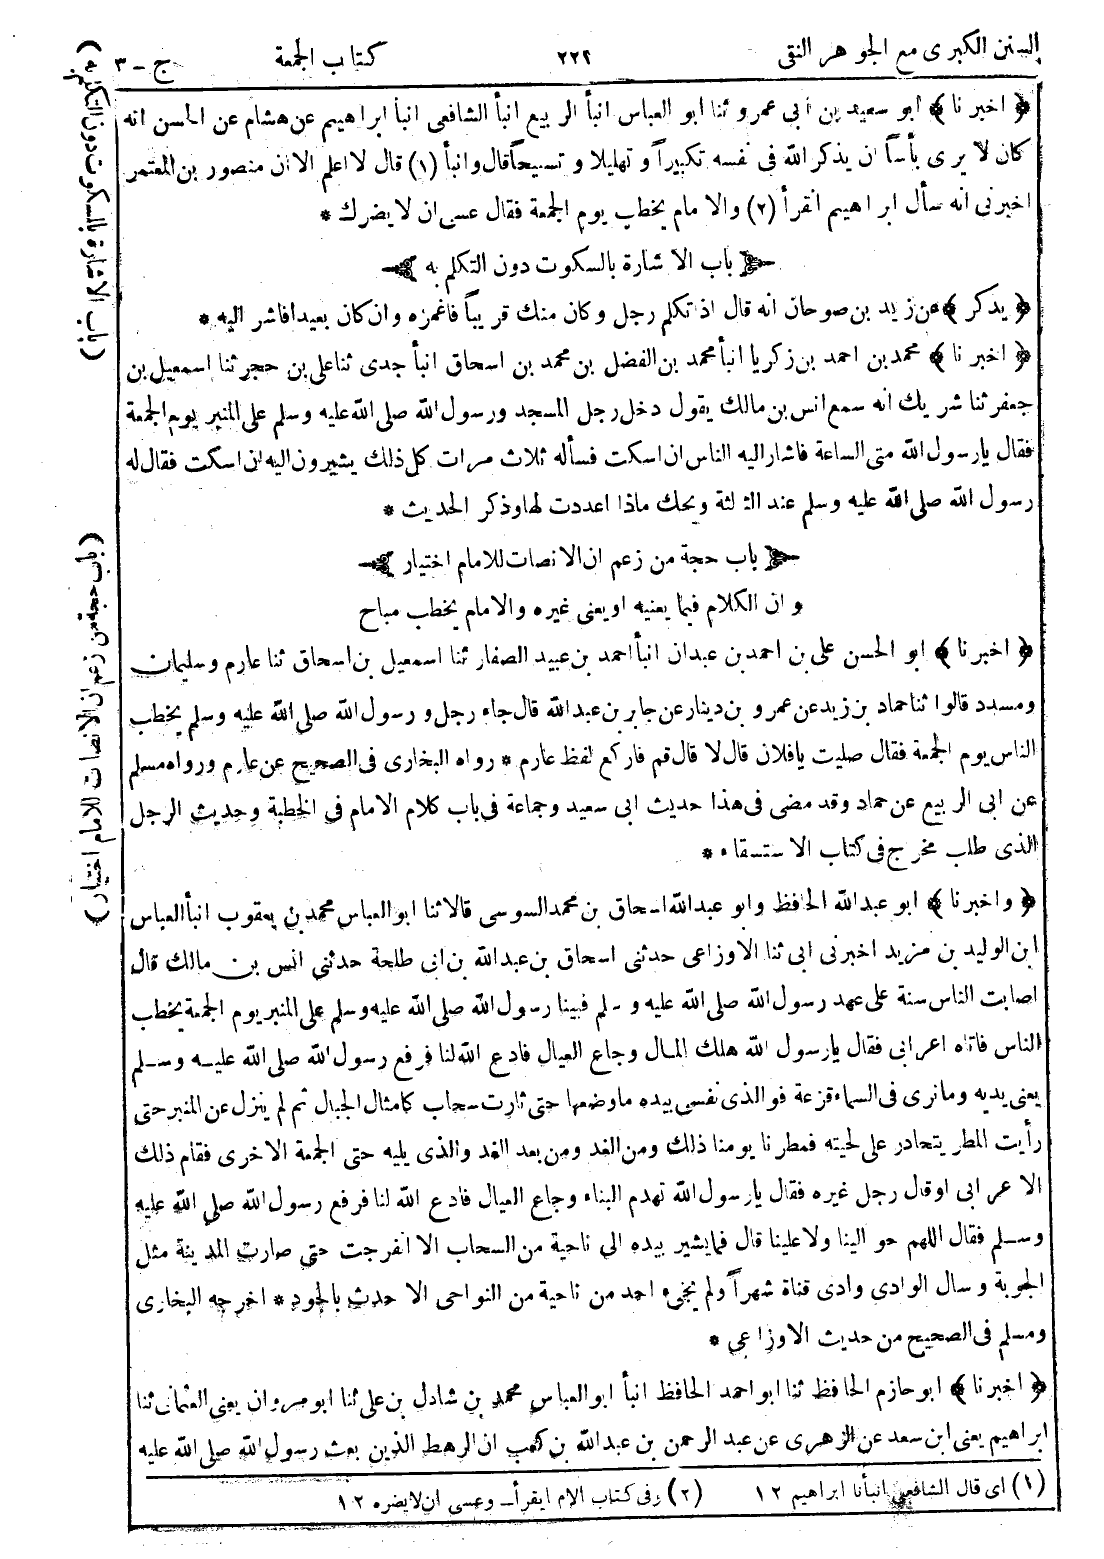 السنن الكبرى مع الجوهر النقى ٢٢٢ كتاب الجمعة ج - ٣
﴿ اخبرنا ﴾ ابو سعيد بن ابى عمرو ثنا ابو العباس انبأ الربيع انبأ الشافعى انبأ ابراهيم عن هشام عن الحسن انه
كان لا يرى بأساً ان يذكر الله فى نفسه تكبيراً و تهليلا و تسبيحاً قال و انبأ (١) قال لا اعلم الا ان منصور بن المعتمر
اخبرنى انه سأل ابراهيم انقرأ (٢) والامام يخطب يوم الجمعة فقال عسى ان لا يضرك *
باب الاشارة بالسكوت دون التكلم به
﴿ يذكر ﴾ عن زيد بن صوحان انه قال اذ تكلم رجل وكان منك قريباً فاغمزه وان كان بعيدا فاشر اليه *
﴿ اخبرنا ﴾ محمد بن احمد بن زكريا انبأ محمد بن الفضل بن محمد بن اسحاق انبأ جدى ثنا على بن حجر ثنا اسمعيل بن
جعفر ثنا شريك انه سمع انس بن مالك يقول دخل رجل المسجد ورسول الله صلى الله عليه وسلم على المنبر يوم الجمعة
فقال يا رسول الله متى الساعة فاشار اليه الناس ان اسكت فسأله ثلاث مرات كل ذلك يشيرون اليه ان اسكت فقال له
رسول الله صلى الله عليه وسلم عند الثلثة ويحك ماذا اعددت لها وذكر الحديث *
باب حجة من زعم ان الانصات للامام اختيار
و ان الكلام فيما يعنيه او يعنى غيره والامام يخطب مباح
﴿ اخبرنا ﴾ ابو الحسن على بن احمد بن عبدان انبأ احمد بن عبيد الصفار ثنا اسمعيل بن اسحاق ثنا عارم وسليمان
ومسدد قالوا ثنا حماد بن زيد عن عمرو بن دينار عن جابر بن عبد الله قال جاء رجل و رسول الله صلى الله عليه وسلم يخطب
الناس يوم الجمعة فقال صليت يا فلان قال لا قال قم فاركع لفظ عارم * رواه البخارى فى الصحيح عن عارم ورواه مسلم
عن ابى الربيع عن حماد وقد مضى فى هذا حديث ابى سعيد وجماعة فى باب كلام الامام فى الخطبة وحديث الرجل
الذى طلب مخرج فى كتاب الاستسقاء *
﴿ واخبرنا ﴾ ابو عبد الله الحافظ وابو عبد الله اسحاق بن محمد السوسى قالا ثنا ابو العباس محمد بن يعقوب انبأ العباس
ابن الوليد بن مزيد اخبرنى ابى ثنا الاوزاعى حدثنى اسحاق بن عبد الله بن ابى طلحة حدثنى انس بن مالك قال
اصابت الناس سنة على عهد رسول الله صلى الله عليه وسلم فبينا رسول الله صلى الله عليه وسلم على المنبر يوم الجمعة يخطب
الناس فاتاه اعرابى فقال يا رسول الله هلك المال وجاع العيال فادع الله لنا فرفع رسول الله صلى الله عليه وسلم
يعنى يديه وما نرى فى السماء قزعة فو الذى نفسى بيده ما وضعها حتى ثارت سحاب كامثال الجبال ثم لم ينزل عن المنبر حتى
رأيت المطر يتحادر على لحيته فمطرنا يومنا ذلك ومن الغد ومن بعد الغد والذى يليه حتى الجمعة الاخرى فقام ذلك
الاعرابى او قال رجل غيره فقال يا رسول الله تهدم البناء وجاع العيال فادع الله لنا فرفع رسول الله صلى الله عليه
وسلم فقال اللهم حوالينا ولا علينا قال فما يشير بيده الى ناحية من السحاب الا انفرجت حتى صارت المدينة مثل
الجوبة وسال الوادى وادى قناة شهراً ولم يجئ احد من ناحية من النواحى الا حدث بالجود * اخرجه البخارى
ومسلم فى الصحيح من حديث الاوزاعى *
﴿ اخبرنا ﴾ ابو حازم الحافظ ثنا ابو احمد الحافظ انبأ ابو العباس محمد بن شادل بن على ثنا ابو مروان يعنى العثمانى ثنا
ابراهيم يعنى ابن سعد عن الزهرى عن عبد الرحمن بن عبد الله بن كعب ان الرهط الذين بعث رسول الله صلى الله عليه
(١) اى قال الشافعى انبأنا ابراهيم ١٢ (٢) وفى كتاب الام ايقرأ - وعسى ان لا يضره ١٢
(باب الاشارة بالسكوت دون التكلم به)
(باب حجة من زعم ان الانصات للامام اختيار)